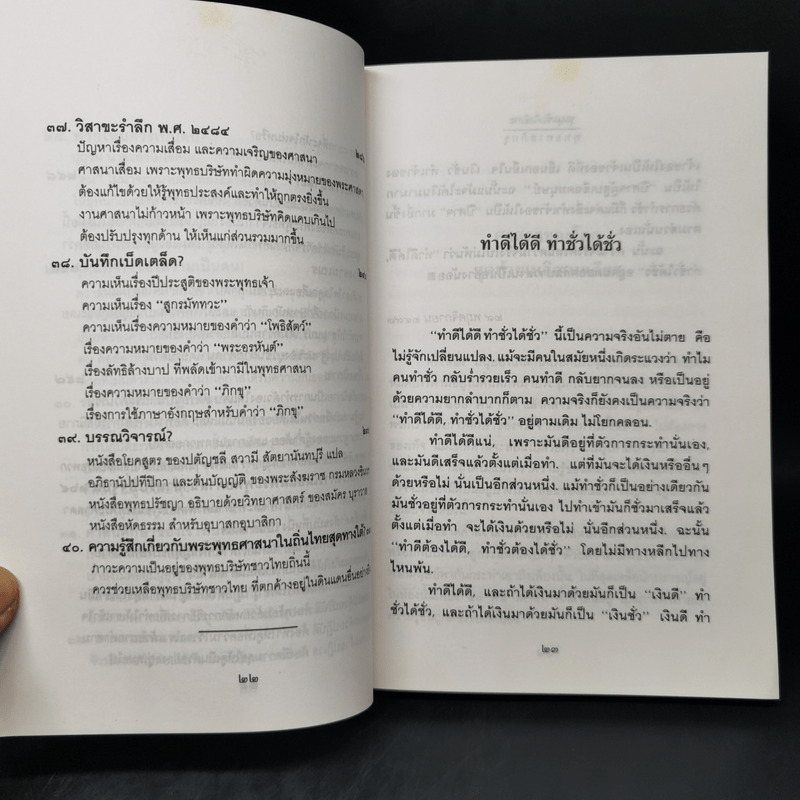 ๓๗. วิสาขะรำลึก พ.ศ. ๒๔๘๔
ปัญหาเรื่องความเสื่อม และความเจริญของศาสนา
ศาสนาเสื่อม เพราะพุทธบริษัททำผิดความมุ่งหมายของพระศาสดา
ต้องแก้ไขด้วยให้รู้พุทธประสงค์และทำให้ถูกตรงยิ่งขึ้น
งานศาสนาไม่ก้าวหน้า เพราะพุทธบริษัทคิดแคบเกินไป
ต้องปรับปรุงทุกด้าน ให้เห็นแก่ส่วนรวมมากขึ้น
๓๘. บันทึกเบ็ดเตล็ด?
ความเห็นเรื่องปีประสูติของพระพุทธเจ้า
ความเห็นเรื่อง “สูกรมัททวะ”
ความเห็นเรื่องความหมายของคำว่า “โพธิสัตว์”
เรื่องความหมายของคำว่า “พระอรหันต์”
เรื่องลัทธิล้างบาป ที่พลัดเข้ามามีในพุทธศาสนา
เรื่องความหมายของคำว่า “ภิกขุ”
เรื่องการใช้ภาษาอังกฤษสำหรับคำว่า “ภิกขุ”
๓๙. บรรณวิจารณ์?
หนังสือโยคสูตร ของปตัญชลี สวามี สัตยานันทบุรี แปล
อภิธานัปปทีปิกา และต้นบัญญัติ ของพระสังฆราช กรมหลวงชินวร
หนังสือพุทธปรัชญา อธิบายด้วยวิทยาศาสตร์ ของสมัคร บุราวาศ
หนังสือหัดธรรม สำหรับอุบาสกอุบาสิกา
๔๐. ความรู้สึกเกี่ยวกับพระพุทธศาสนาในถิ่นไทยสุดทางใต้?
ภาวะความเป็นอยู่ของพุทธบริษัทชาวไทยถิ่นนี้
ควรช่วยเหลือพุทธบริษัทชาวไทย ที่ตกค้างอยู่ในดินแดนอื่น
๒๒
ทำดีได้ดี ทำชั่วได้ชั่ว
“ทำดีได้ดี ทำชั่วได้ชั่ว” นี้เป็นความจริงอันไม่ตาย คือ
ไม่รู้จักเปลี่ยนแปลง. แม้จะมีคนในสมัยหนึ่งเกิดระแวงว่า ทำไม
คนทำชั่ว กลับร่ำรวยเร็ว คนทำดี กลับยากจนลง หรือเป็นอยู่
ด้วยความยากลำบากก็ตาม ความจริงก็ยังคงเป็นความจริงว่า
“ทำดีได้ดี, ทำชั่วได้ชั่ว” อยู่ตามเดิม ไม่โยกคลอน.
ทำดีได้ดีแน่, เพราะมันดีอยู่ที่ตัวการกระทำนั่นเอง,
และมันดีเสร็จแล้วตั้งแต่เมื่อทำ. แต่ที่มันจะได้เงินหรืออื่นๆ
ด้วยหรือไม่ นั่นเป็นอีกส่วนหนึ่ง. แม้ทำชั่วก็เป็นอย่างเดียวกัน
มันชั่วอยู่ที่ตัวการกระทำนั่นเอง ไปทำเข้ามันก็ชั่วมาเสร็จแล้ว
ตั้งแต่เมื่อทำ จะได้เงินด้วยหรือไม่ นั่นอีกส่วนหนึ่ง. ฉะนั้น
“ทำดีต้องได้ดี, ทำชั่วต้องได้ชั่ว” โดยไม่มีทางหลีกไปทาง
ไหนพ้น.
ทำดีได้ดี, และถ้าได้เงินมาด้วยมันก็เป็น “เงินดี” ทำ
ชั่วได้ชั่ว, และถ้าได้เงินมาด้วยมันก็เป็น “เงินชั่ว” เงินดี ทำ
๒๓